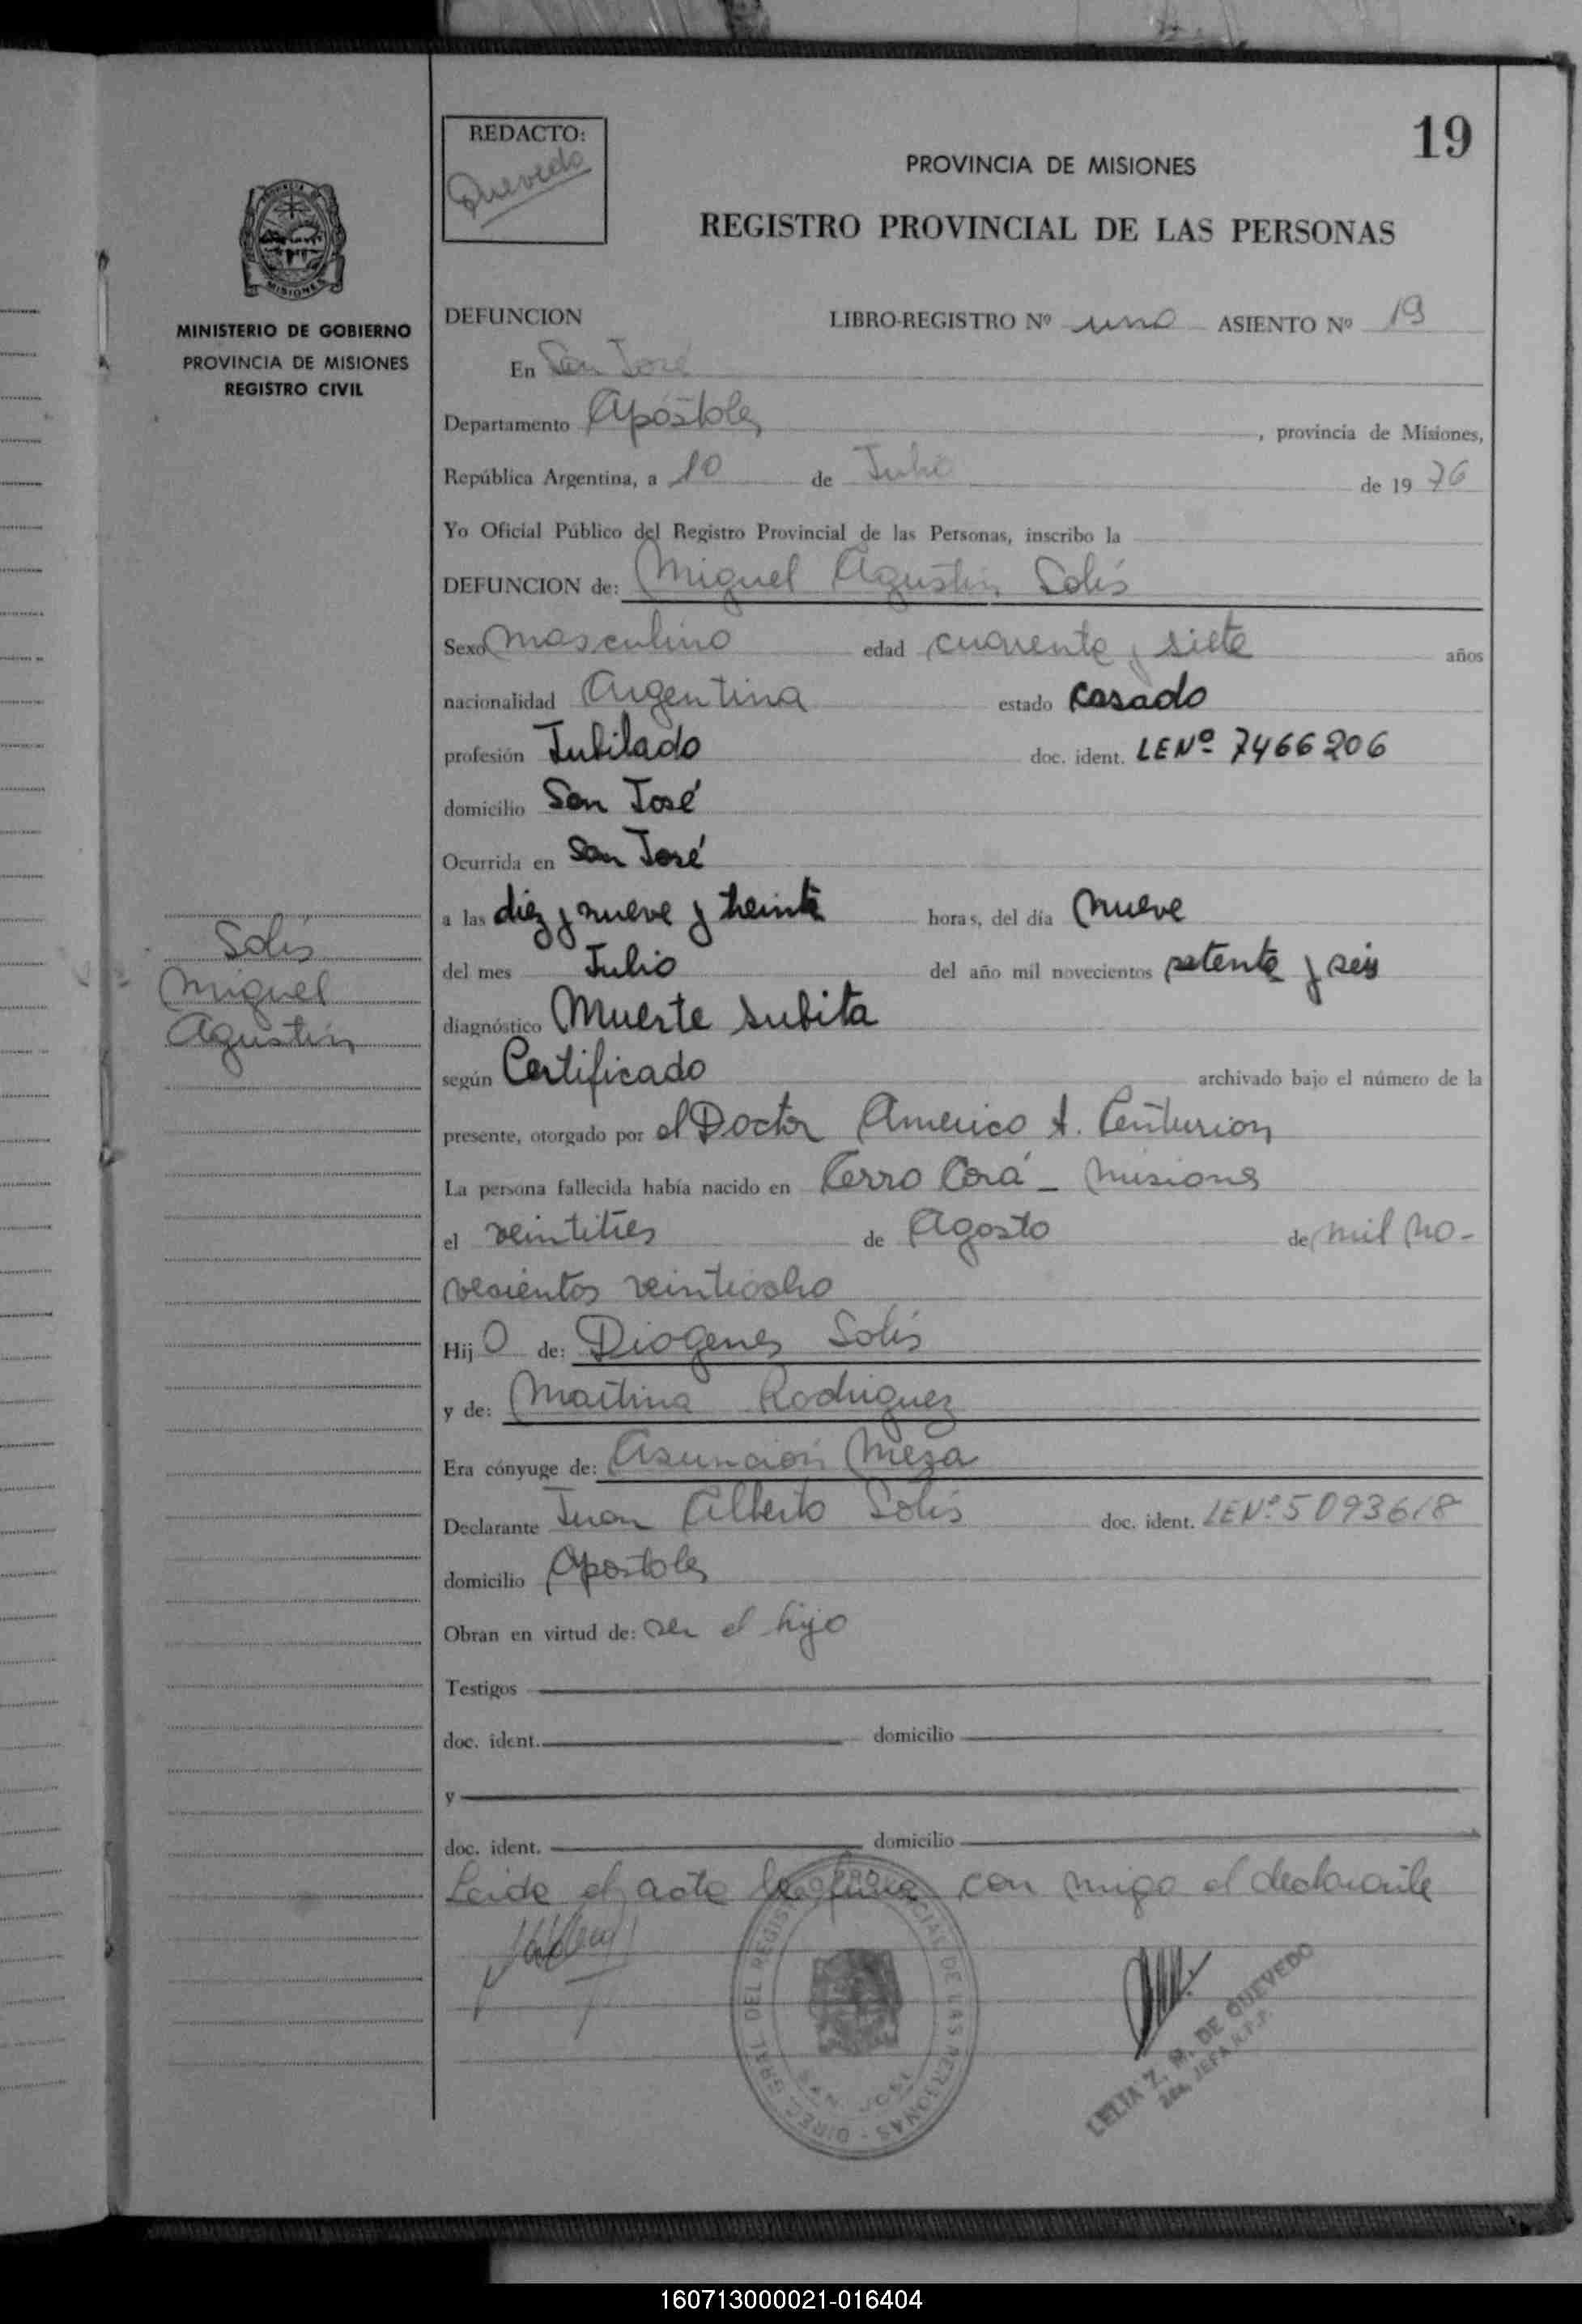 REDACTO:
Quevedo
19
PROVINCIA DE MISIONES
REGISTRO PROVINCIAL DE LAS PERSONAS
MINISTERIO DE GOBIERNO
PROVINCIA DE MISIONES
REGISTRO CIVIL
DEFUNCION LIBRO-REGISTRO Nº uno ASIENTO Nº 19
En San José
Departamento Apóstoles, provincia de Misiones,
República Argentina, a 10 de Julio de 1976
Yo Oficial Público del Registro Provincial de las Personas, inscribo la
DEFUNCION de: Miguel Agustin Solis
Sexo masculino edad cuarenta y siete años
nacionalidad Argentina estado Casado
profesión Jubilado doc. ident. LE Nº 7466206
domicilio San José
Ocurrida en San José
a las diez y nueve y treinta horas, del día nueve
del mes Julio del año mil novecientos setenta y seis
diagnóstico Muerte subita
según Certificado archivado bajo el número de la
presente, otorgado por el Doctor Americo A. Centurion
La persona fallecida había nacido en Cerro Corá - Misiones
el veintitres de Agosto de mil no-
vecientos veintiocho
Hijo de: Diogenes Solis
y de: Martina Rodriguez
Era cónyuge de: Asunción Meza
Declarante Juan Alberto Solis doc. ident. LE Nº 5093618
domicilio Apostoles
Obran en virtud de: ser el hijo
Testigos
doc. ident. domicilio
y
doc. ident. domicilio
Leida el acta la firma con migo el declarante
Solis
Miguel
Agustin
DIREC. GRAL. DEL REGISTRO PROVINCIAL DE LAS PERSONAS
SAN JOSE
LELIA Z. M. DE QUEVEDO
JEFA R.P.P.
160713000021-016404